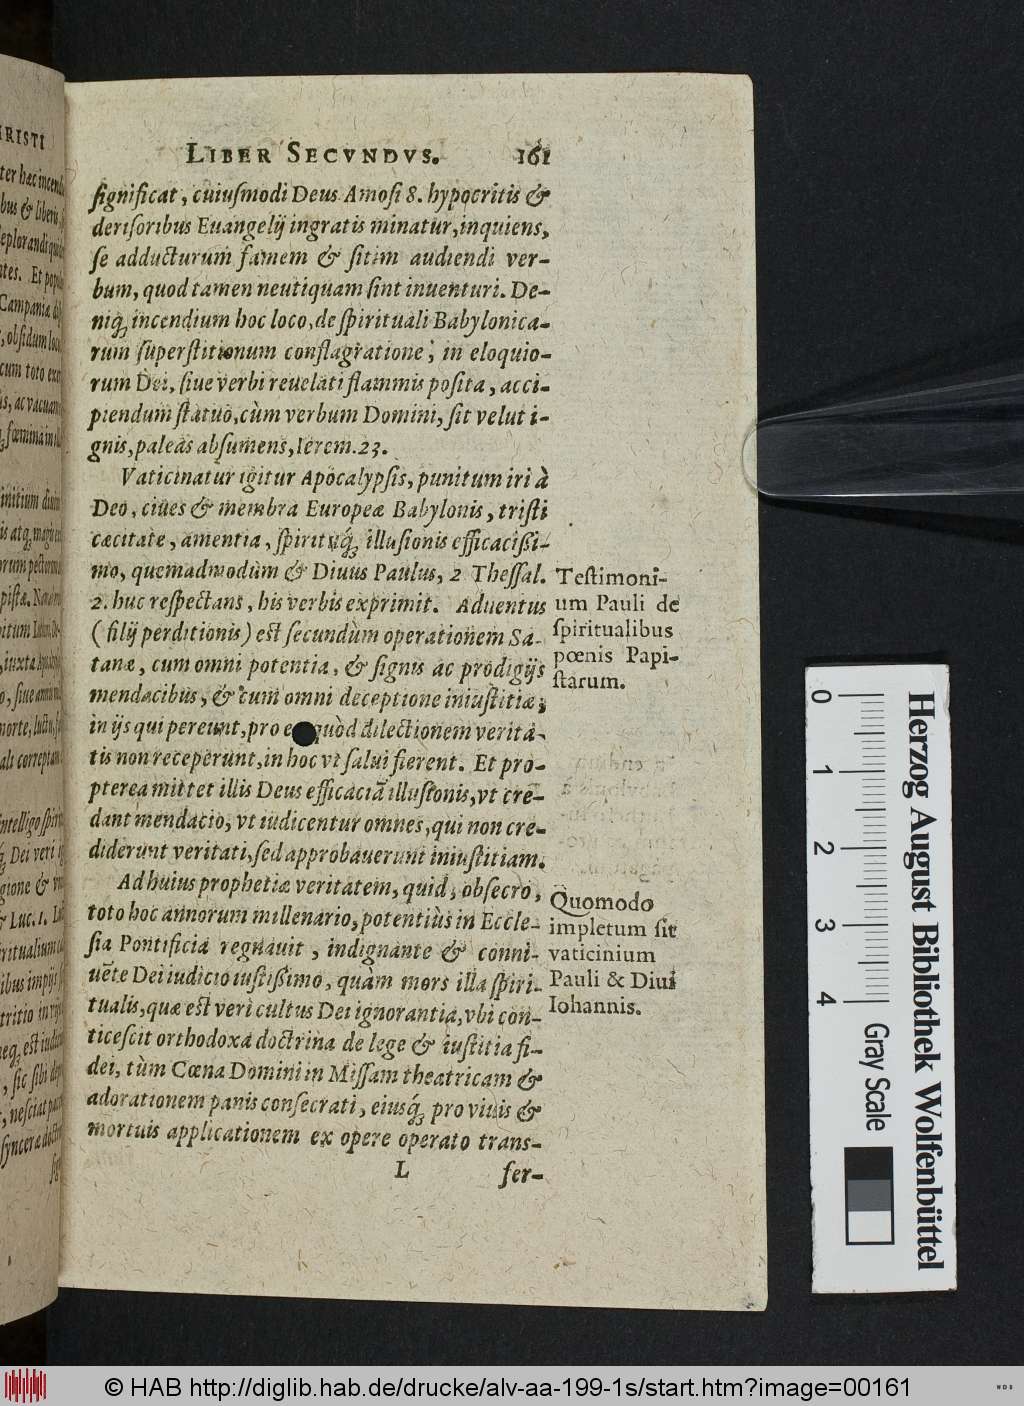 LIBER SECVNDVS. 161
ſignificat, cuiuſmodi Deus Amoſi 8. hypocritis &
deriſoribus Euangelij ingratis minatur, inquiens,
ſe adducturum famem & ſitim audiendi ver-
bum, quod tamen neutiquam ſint inuenturi. De-
niq́; incendium hoc loco, de ſpirituali Babylonica-
rum ſuperſtitionum conflagratione, in eloquio-
rum Dei, ſiue verbi reuelati flammis poſita, acci-
piendum ſtatuo, cùm verbum Domini, ſit velut i-
gnis, paleas abſumens, Ierem. 23.
Vaticinatur igitur Apocalypſis, punitum iri à
Deo, ciues & membra Europeæ Babylonis, triſti
cæcitate, amentia, ſpirituq́; illuſionis efficacißi-
mo, quemadmodùm & Diuus Paulus, 2 Theſſal.
2. huc reſpectans, his verbis exprimit. Aduentus
(filij perditionis) eſt ſecundùm operationem Sa-
tanæ, cum omni potentia, & ſignis ac prodigijs
mendacibus, & cum omni deceptione iniuſtitiæ,
in ijs qui pereunt, pro e quòd dilectionem verita-
tis non receperunt, in hoc vt ſalui fierent. Et pro-
pterea mittet illis Deus efficaciā illuſionis, vt cre-
dant mendacio, vt iudicentur omnes, qui non cre-
diderunt veritati, ſed approbauerunt iniuſtitiam.
Ad huius prophetiæ veritatem, quid, obſecro,
toto hoc annorum millenario, potentiùs in Eccle-
ſia Pontificia regnauit, indignante & conni-
uēte Dei iudicio iuſtißimo, quàm mors illa ſpiri-
tualis, quæ eſt veri cultus Dei ignorantia, vbi con-
ticeſcit orthodoxa doctrina de lege & iuſtitia fi-
dei, tùm Cœna Domini in Miſſam theatricam &
adorationem panis conſecrati, eiusq́; pro viuis &
mortuis applicationem ex opere operato trans-
L ſer-
Teſtimoni-
um Pauli de
ſpiritualibus
pœnis Papi-
ſtarum.
Quomodo
impletum ſit
vaticinium
Pauli & Diui
Iohannis.
0 1 2 3 4
Gray Scale
Herzog August Bibliothek Wolfenbüttel
© HAB http://diglib.hab.de/drucke/alv-aa-199-1s/start.htm?image=00161